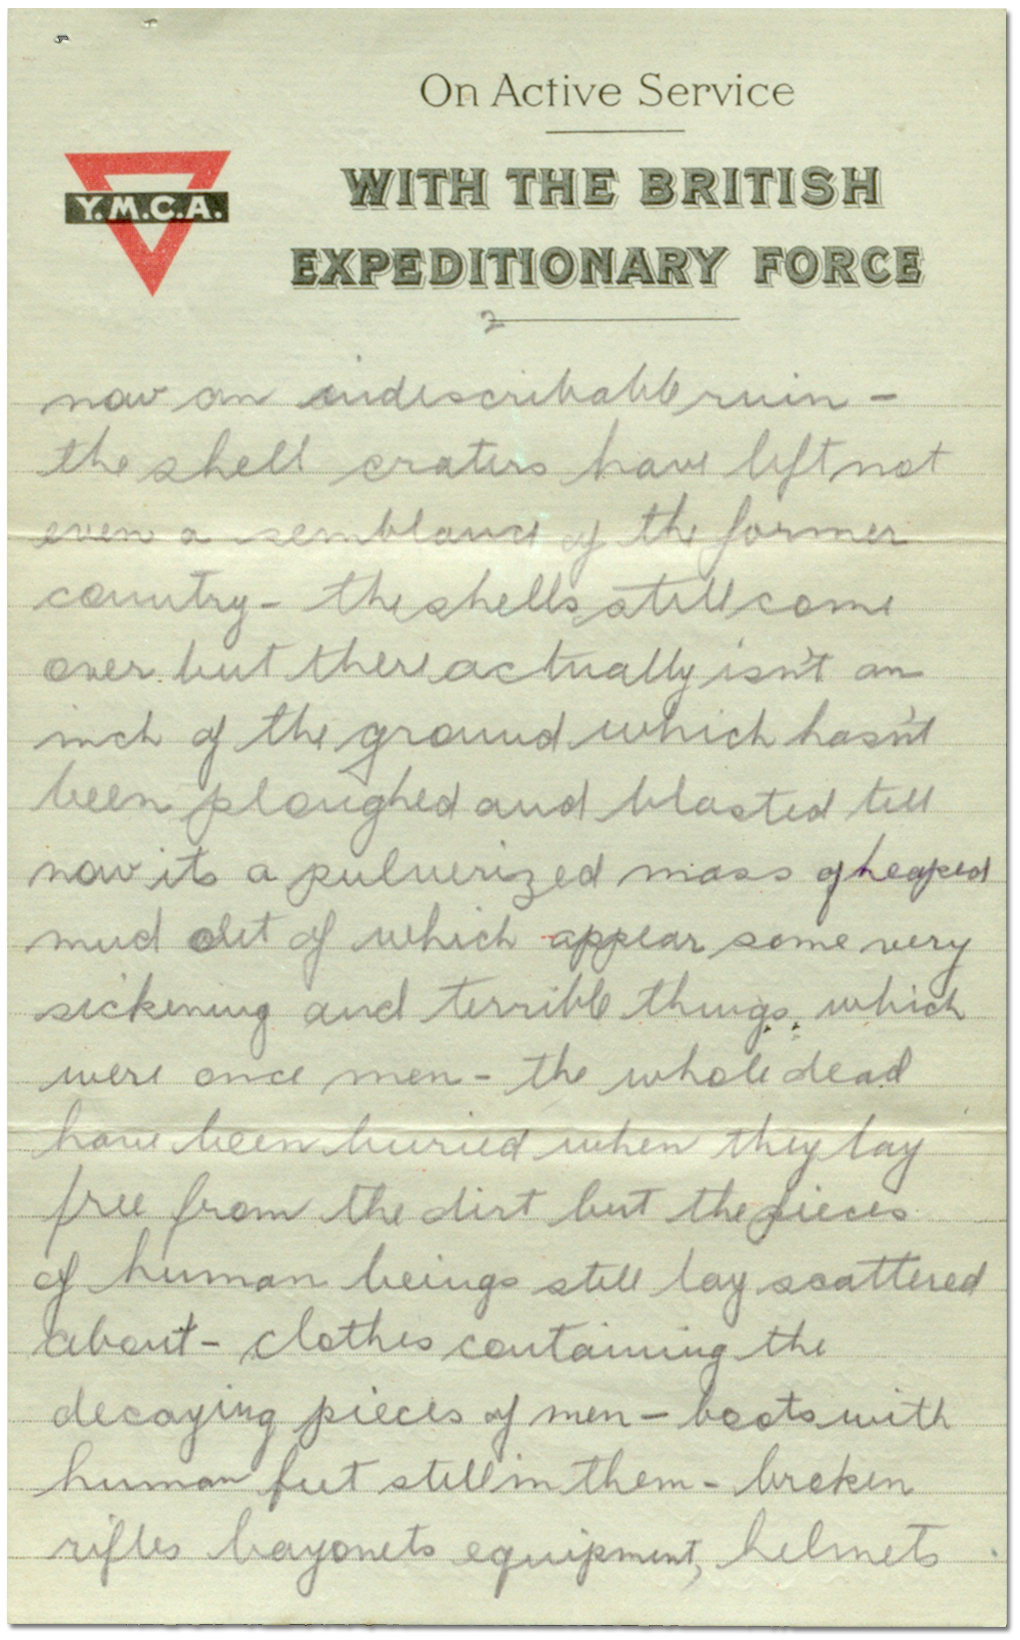 On Active Service
Y.M.C.A.
WITH THE BRITISH
EXPEDITIONARY FORCE
2
now an indescribable ruin -
the shell craters have left not
even a semblance of the former
country - the shells still come
over but there actually isn't an
inch of the ground which hasn't
been ploughed and blasted till
now its a pulverized mass of heaped
mud out of which appear some very
sickening and terrible things which
were once men - the whole dead
have been buried when they lay
free from the dirt but the pieces
of human beings still lay scattered
about - clothes containing the
decaying pieces of men - boots with
human feet still in them - broken
rifles bayonets equipment, helmets